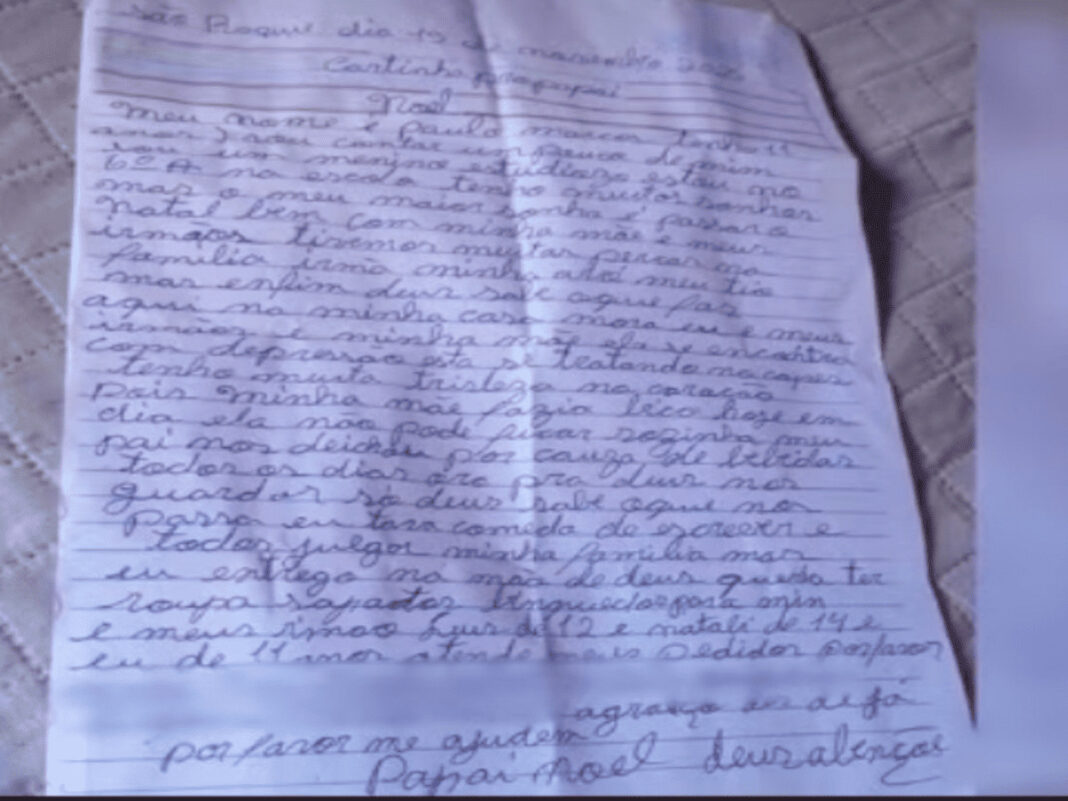 são Roque dia 19 de novembro
Cartinha pra papai
Noel
Meu nome é paulo marcos tenho 11
anos vou contar um pouco de mim
sou um menino estudiozo estou no
6º A na escola tenho muitos sonhos
mas o meu maior sonho é passar o
natal bem com minha mãe e meus
irmãos tivemos muitas percas na
família irmã minha até meu tio
mas enfim deus sabe oque faz
aqui na minha casa mora eu e meus
irmãos e minha mãe ela se encontra
com depressão esta se tratando na capes
tenho muita tristeza no coração
pois minha mãe fazia bico hoze em
dia ela não pode ficar sozinha meu
pai nos deichou por cauza de bebidas
todos os dias óro pra deus nos
guardar só deus sabe oque nos
passa eu com de escrever e
todos julgor minha família mas
eu entrego na mão de deus queria ter
roupa sapatos brinquedos para min
e meus irmao Luis de 12 e natali de 14 e
eu de 11 anos atende meus pedidos por favor
agraduço
por favor me ajudem
Papai Noel deus abençoe